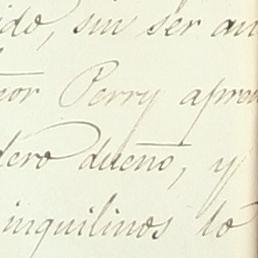 ido, sin ser au
eor Perry apren
dero dueño, y
inquilinos lo